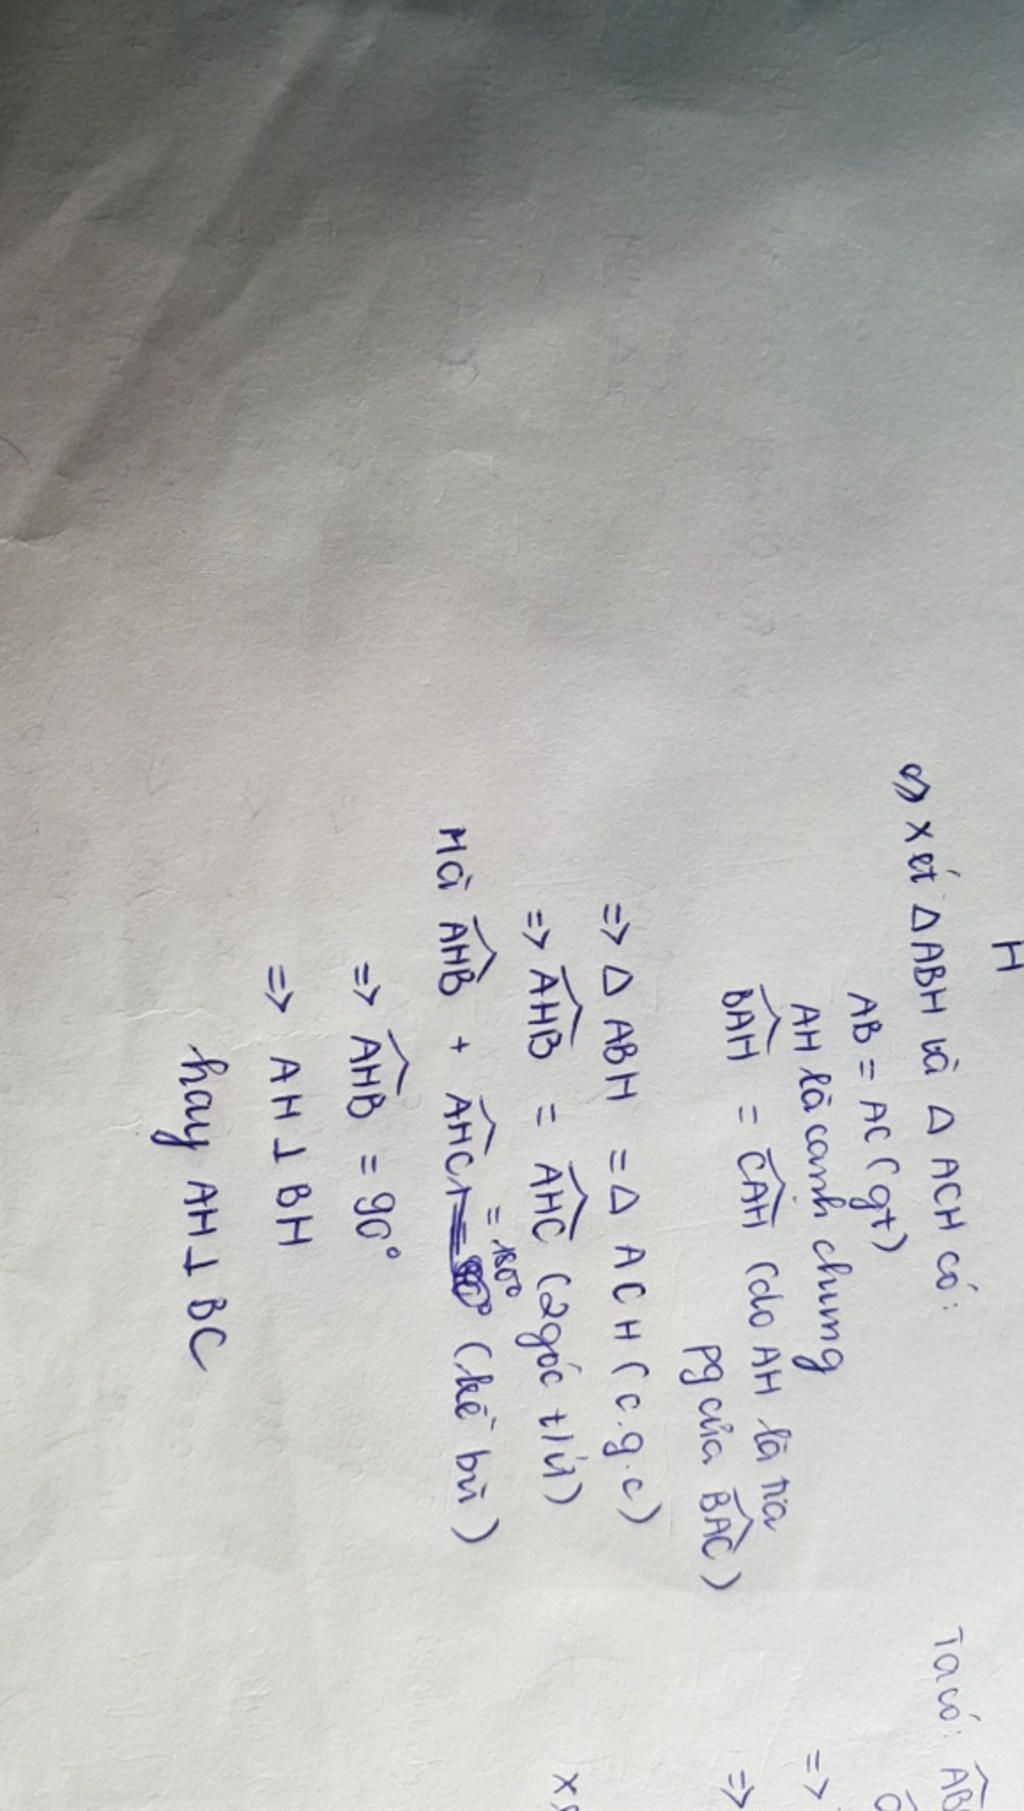 H
a) Xét Δ ABH và Δ ACH có:
AB = AC (gt)
AH là cạnh chung
$\widehat{BAH}$ = $\widehat{CAH}$ (do AH là tia
pg của $\widehat{BAC}$)
=> Δ ABH = Δ ACH (c.g.c)
=> $\widehat{AHB}$ = $\widehat{AHC}$ (2 góc t/ứ)
Mà $\widehat{AHB}$ + $\widehat{AHC}$ = 180° (kề bù)
=> $\widehat{AHB}$ = 90°
=> AH ⊥ BH
hay AH ⊥ BC
Ta có: $\widehat{AB}$
=>
=>